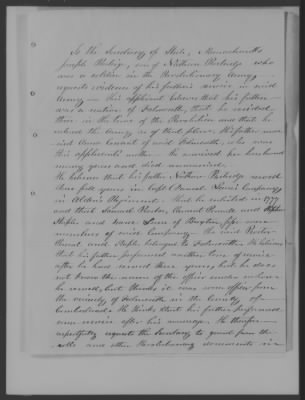 To the Secretary of State, Massachusetts
Joseph Partridge, son of Nathan Partridge who
was a soldier in the Revolutionary Army,
requests evidence of his father's service in said
Army. This applicant believes that his father
was a native of Falmouth, that he resided
there in the time of the Revolution and that he
entered the Army in that place. His father mar-
ried Anna Conant of said Falmouth, who was
this applicant's mother. She survived her husband
many years and died unmarried.
He believes that his father Nathan Partridge served
three full years in Capt. Daniel Lane's Company,
in Alden's Regiment. That he enlisted in 1777
and that Samuel Baxter, Conant and Stephen
Staples and Isaac Lane of Buxton, were
members of said Company. The said Baxter
Conant and Staples belonged to Falmouth. He believes
that his father performed another tour of service
after he had served three years, but he does
not know the name of the officer under whom
he served, but thinks it was some officer from
the vicinity of Falmouth in the County of
Cumberland. He thinks that his father performed
some service after his marriage. He therefore
respectfully requests the Secretary to grant from the
rolls and other Revolutionary documents in